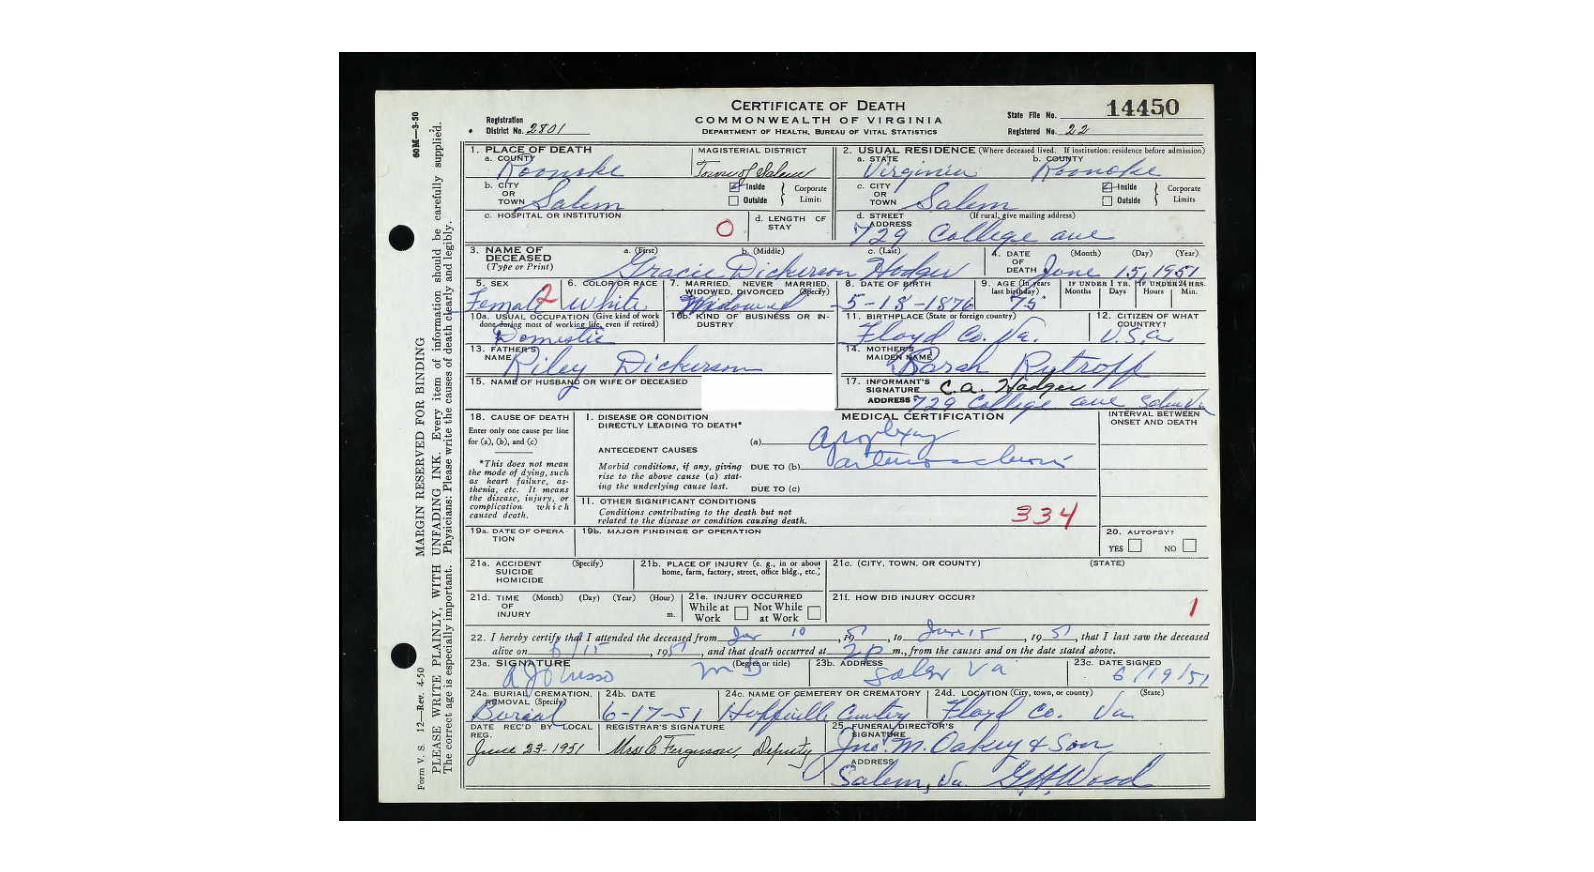 CERTIFICATE OF DEATH
COMMONWEALTH OF VIRGINIA
DEPARTMENT OF HEALTH, BUREAU OF VITAL STATISTICS
Registration District No. 2801
State File No. 14450
Registered No. 22
1. PLACE OF DEATH
a. COUNTY Roanoke
MAGISTERIAL DISTRICT Town of Salem
b. CITY OR TOWN Salem
Inside Outside Corporate Limits
c. HOSPITAL OR INSTITUTION
0
d. LENGTH OF STAY
2. USUAL RESIDENCE (Where deceased lived. If institution: residence before admission)
a. STATE Virginia
b. COUNTY Roanoke
c. CITY OR TOWN Salem
Inside Outside Corporate Limits
d. STREET ADDRESS (If rural, give mailing address) 729 College ave
3. NAME OF DECEASED (Type or Print)
a. (First) b. (Middle) c. (Last)
Gracie Dickerson Hodges
4. DATE OF DEATH (Month) (Day) (Year) June 15, 1951
5. SEX Female 2
6. COLOR OR RACE White
7. MARRIED, NEVER MARRIED, WIDOWED, DIVORCED (Specify) Widowed
8. DATE OF BIRTH 5-18-1876
9. AGE (In years last birthday) 75
IF UNDER 1 YR. Months Days
IF UNDER 24 HRS. Hours Min.
10a. USUAL OCCUPATION (Give kind of work done during most of working life, even if retired) Domestic
10b. KIND OF BUSINESS OR INDUSTRY
11. BIRTHPLACE (State or foreign country) Floyd Co. Va.
12. CITIZEN OF WHAT COUNTRY? U.S.a
13. FATHER'S NAME Riley Dickerson
14. MOTHER'S MAIDEN NAME Sarah
15. NAME OF HUSBAND OR WIFE OF DECEASED
17. INFORMANT'S SIGNATURE C.A. Hodges
ADDRESS 729 College ave Salem Va
18. CAUSE OF DEATH
Enter only one cause per line for (a), (b), and (c)
*This does not mean the mode of dying, such as heart failure, asthenia, etc. It means the disease, injury, or complication which caused death.
MEDICAL CERTIFICATION
INTERVAL BETWEEN ONSET AND DEATH
I. DISEASE OR CONDITION DIRECTLY LEADING TO DEATH*
(a) Apoplexy
ANTECEDENT CAUSES
Morbid conditions, if any, giving rise to the above cause (a) stating the underlying cause last.
DUE TO (b) arteriosclerosis
DUE TO (c)
11. OTHER SIGNIFICANT CONDITIONS
Conditions contributing to the death but not related to the disease or condition causing death.
334
19a. DATE OF OPERATION
19b. MAJOR FINDINGS OF OPERATION
20. AUTOPSY?
YES NO
21a. ACCIDENT SUICIDE HOMICIDE (Specify)
21b. PLACE OF INJURY (e. g., in or about home, farm, factory, street, office bldg., etc.)
21c. (CITY, TOWN, OR COUNTY) (STATE)
21d. TIME OF INJURY (Month) (Day) (Year) (Hour) m.
21e. INJURY OCCURRED
While at Work Not While at Work
21f. HOW DID INJURY OCCUR?
1
22. I hereby certify that I attended the deceased from Jan 10, 1951, to June 15, 1951, that I last saw the deceased
alive on 6/15, 1951, and that death occurred at 2p m., from the causes and on the date stated above.
23a. SIGNATURE (Degree or title) M D
23b. ADDRESS Salem Va
23c. DATE SIGNED 6/19/51
24a. BURIAL, CREMATION, REMOVAL (Specify) Burial
24b. DATE 6-17-51
24c. NAME OF CEMETERY OR CREMATORY
24d. LOCATION (City, town, or county) (State) Floyd Co. Va.
DATE REC'D BY LOCAL REG. June 23-1951
REGISTRAR'S SIGNATURE Mrs C. Ferguson, Deputy
25. FUNERAL DIRECTOR'S SIGNATURE Jno. M. Oakey & Son
ADDRESS Salem, Va. G.H. Wood
60M—3-50
MARGIN RESERVED FOR BINDING
Form V. S. 12—Rev. 4-50
PLEASE WRITE PLAINLY, WITH UNFADING INK. Every item of information should be carefully supplied.
The correct age is especially important. Physicians: Please write the causes of death clearly and legibly.